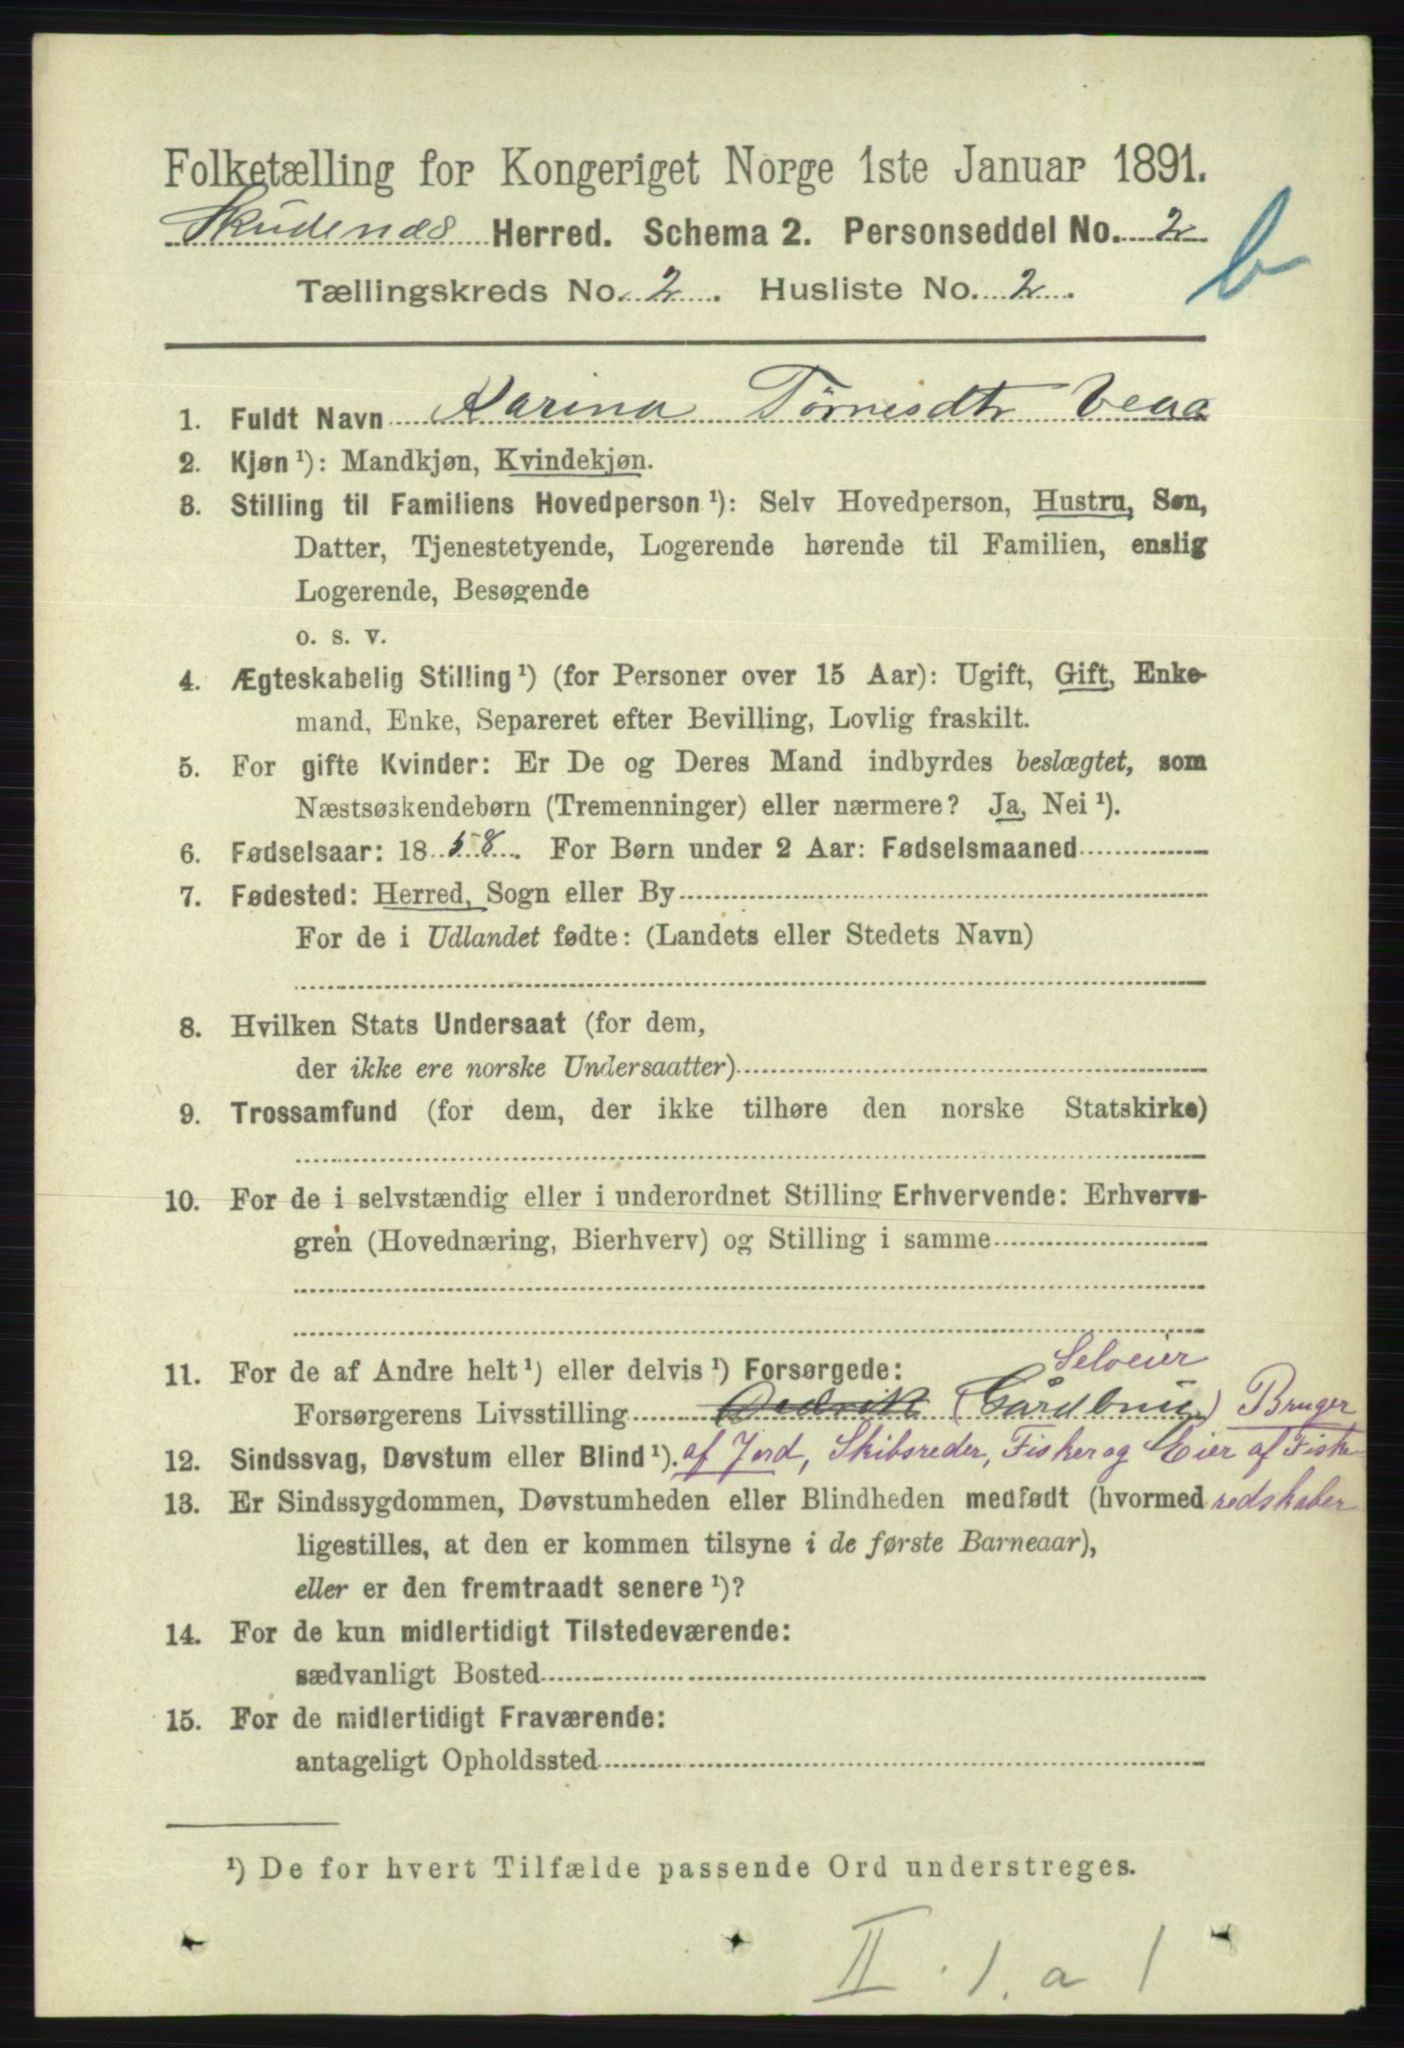 Folketælling for Kongeriget Norge 1ste Januar 1891.
Skudenæs Herred. Schema 2. Personseddel No. 2
Tællingskreds No. 2. Husliste No. 2.
b
1. Fuldt Navn Karina Tørresdtr Veaa
2. Kjøn ¹): Mandkjøn, Kvindekjøn.
3. Stilling til Familiens Hovedperson ¹): Selv Hovedperson, Hustru, Søn,
Datter, Tjenestetyende, Logerende hørende til Familien, enslig
Logerende, Besøgende
o. s. v.
4. Ægteskabelig Stilling ¹) (for Personer over 15 Aar): Ugift, Gift, Enke-
mand, Enke, Separeret efter Bevilling, Lovlig fraskilt.
5. For gifte Kvinder: Er De og Deres Mand indbyrdes beslægtet, som
Næstsøskendebørn (Tremenninger) eller nærmere? Ja, Nei ¹).
6. Fødselsaar: 1858. For Børn under 2 Aar: Fødselsmaaned
7. Fødested: Herred, Sogn eller By
For de i Udlandet fødte: (Landets eller Stedets Navn)
8. Hvilken Stats Undersaat (for dem,
der ikke ere norske Undersaatter)
9. Trossamfund (for dem, der ikke tilhøre den norske Statskirke)
10. For de i selvstændig eller i underordnet Stilling Erhvervende: Erhvervs-
gren (Hovednæring, Bierhverv) og Stilling i samme
Selveier
11. For de af Andre helt ¹) eller delvis ¹) Forsørgede:
Forsørgerens Livsstilling (Gårdbrug) Bruger
12. Sindssvag, Døvstum eller Blind ¹). af Jord, Skibsreder, Fisker og Eier af Fiske-
13. Er Sindssygdommen, Døvstumheden eller Blindheden medfødt (hvormed redskaber
ligestilles, at den er kommen tilsyne i de første Barneaar),
eller er den fremtraadt senere ¹)?
14. For de kun midlertidigt Tilstedeværende:
sædvanligt Bosted
15. For de midlertidigt Fraværende:
antageligt Opholdssted
¹) De for hvert Tilfælde passende Ord understreges.
II. 1. a 1